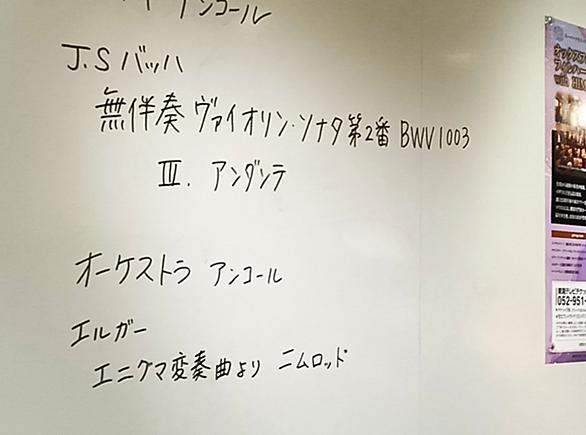 アンコール
J.S バッハ
無伴奏 ヴァイオリン・ソナタ第2番 BWV1003
III. アンダンテ
オーケストラ アンコール
エルガー
エニグマ変奏曲より ニムロッド
with HIM
052-951